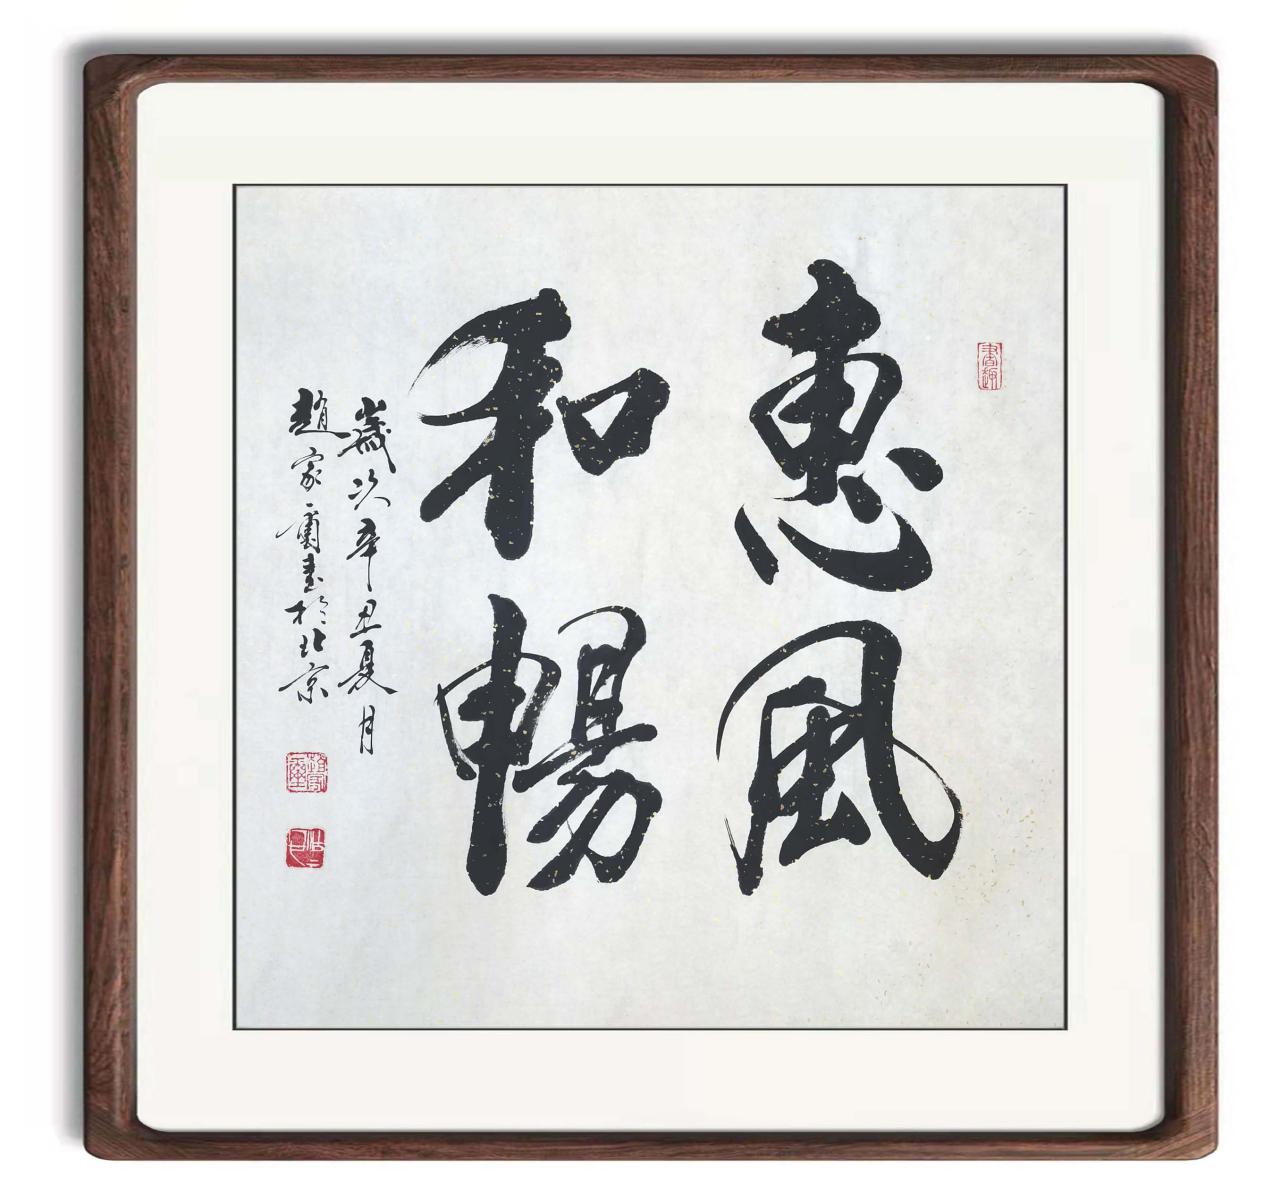 惠風
和暢
歲次辛丑夏月
趙家甫書於北京
書趣